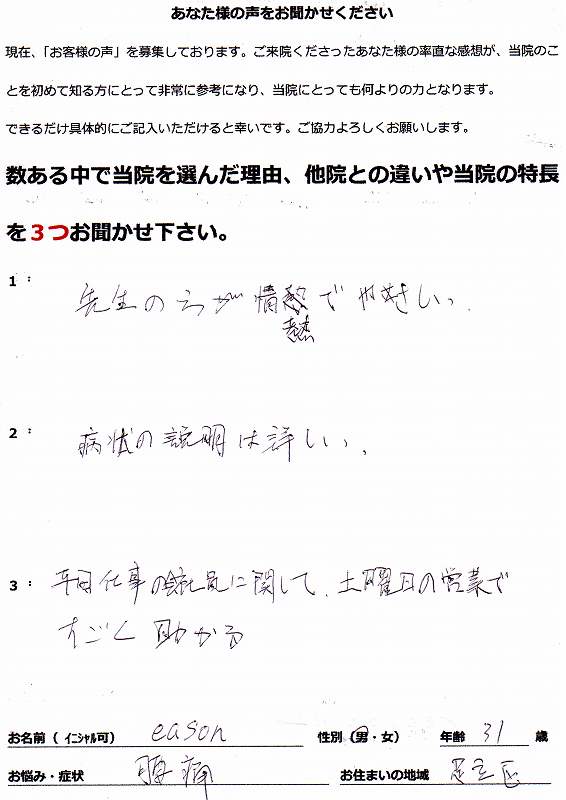 あなた様の声をお聞かせください
現在、「お客様の声」を募集しております。ご来院くださったあなた様の率直な感想が、当院のこ
とを初めて知る方にとって非常に参考になり、当院にとっても何よりの力となります。
できるだけ具体的にご記入いただけると幸いです。ご協力よろしくお願いします。
数ある中で当院を選んだ理由、他院との違いや当院の特長
を3つお聞かせ下さい。
1: 先生の方が情熱でやさしい。
2: 病状の説明は詳しい。
3: 平日仕事の会社員に関して、土曜日の営業で
すごく助かる
お名前(イニシャル可) eason 性別(男・女) 年齢 31 歳
お悩み・症状 腰痛 お住まいの地域 足立区